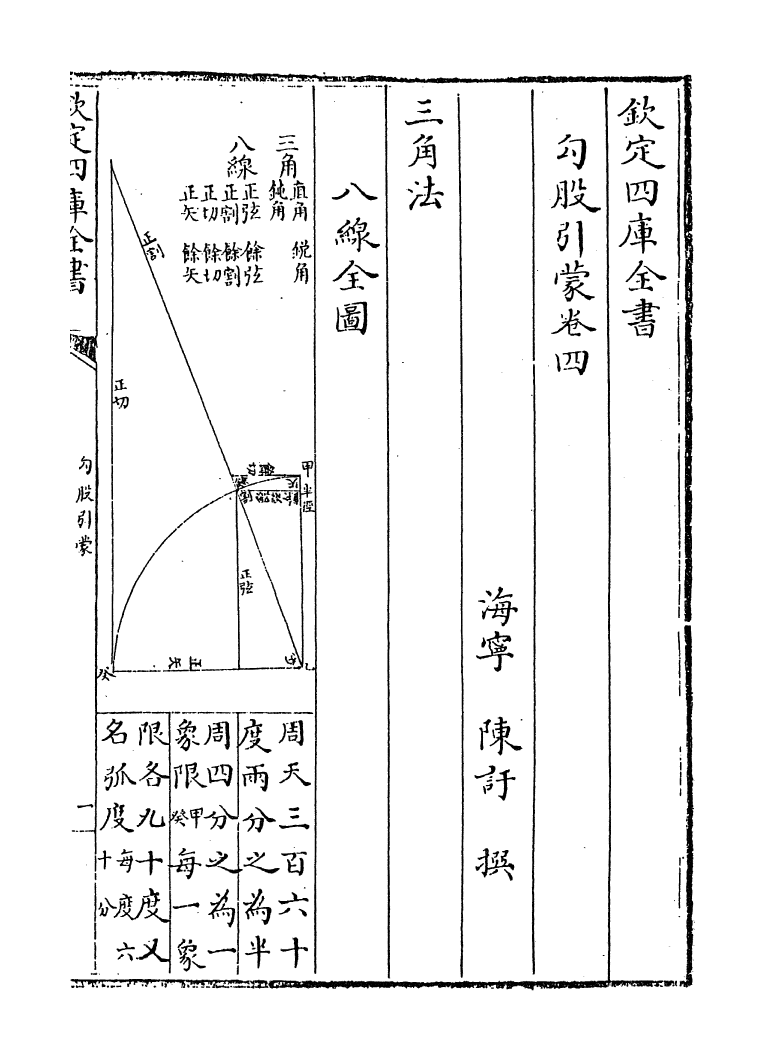 欽定四庫全書
勾股引蒙卷四
海寧 陳訏 撰
三角法
八線全圖
三角
直角 銳角
鈍角
八線
正弦 餘弦
正割 餘割
正切 餘切
正矢 餘矢
正割
正切
甲
半徑
正弦
正矢
癸
周天三百六十
度兩分之為半
周四分之為一
象限甲癸每一象
限各九十度又
名弧度每度六
十分
欽定四庫全書
勾股引蒙
一